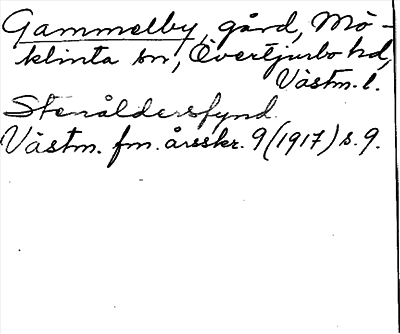 Gammelby, gård, Mö-
klinta sn, Övertjurbo hd,
Västm. l.
Stenåldersfynd
Västm. fm. årsskr. 9 (1917) s. 9.